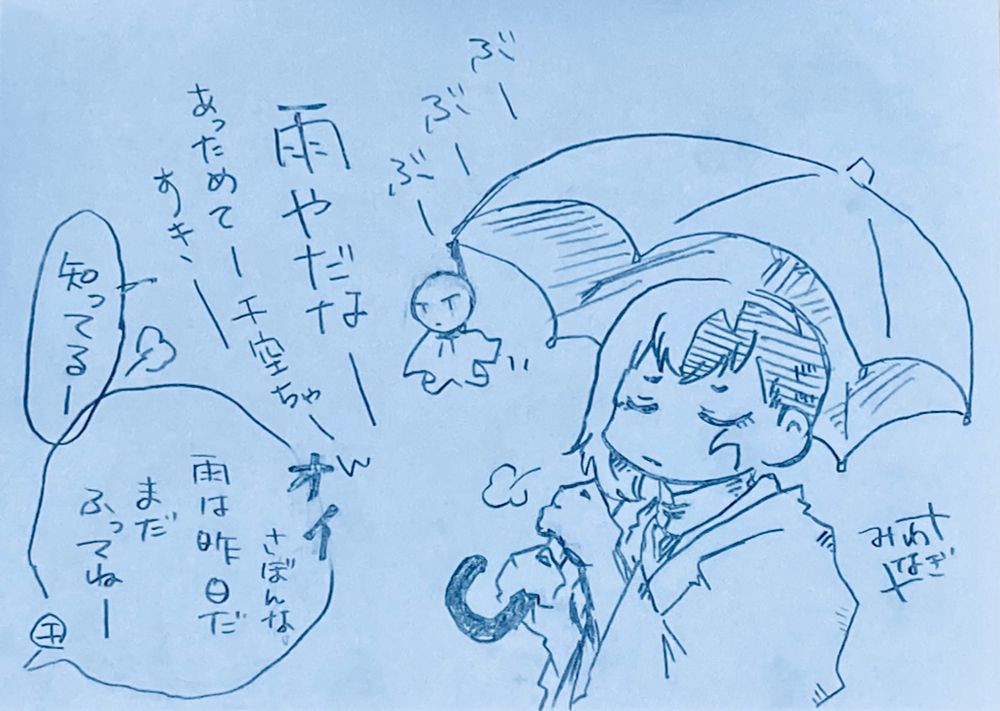 ぶー
ぶー
ぶー
雨やだなー
あっためてー千空ちゃーん
すきーー
オイ
さぼんな。
雨は昨日だ
まだ
ふってねー
千
知ってるー
みゅ
なぎ